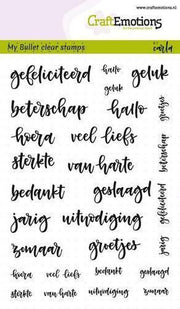 www.craftemotions.nl
CraftEmotions
My Bullet clear stamps
carla
gefeliciteerd hallo geluk
geluk
beterschap hallo groetjes
hoera veel liefs
sterkte van harte beterschap
bedankt geslaagd
jarig uitnodiging gefeliciteerd
zomaar groetjes jarig
hoera veel liefs bedankt geslaagd
sterkte van harte uitnodiging zomaar